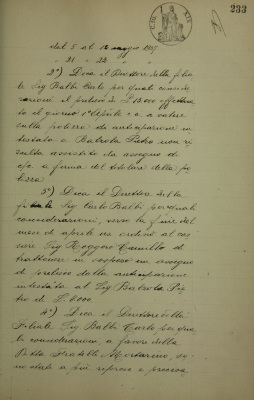 233
dal 5 al 12 maggio 1927
" 21 " 22 "
2°) Dica il Direttore della filia
le Sig Balbi Carlo per quali conside
razioni il prelievo di £ 12000 effettua
to il giorno a valere
sulla polizza di anticipazione in
testata a Batrola Pietro non ri
sulta assistito da assegno di
c/c a firma del titolare della po
lizza.
3°) Dica il Direttore della
filiale Sig Carlo Balbi per quali
considerazioni, verso la fine del
mese di aprile ordinò al cas
siere Sig Roggero Camillo di
trattenere in sospeso un assegno
di prelievo dalla anticipazione
intestata al Sig Batrola Pie
tro di £ 6000.
4°) Dica il Direttore della
Filiale Sig Balbi Carlo per qua
li considerazioni, a favore della
Ditta Fratelli
a più riprese e